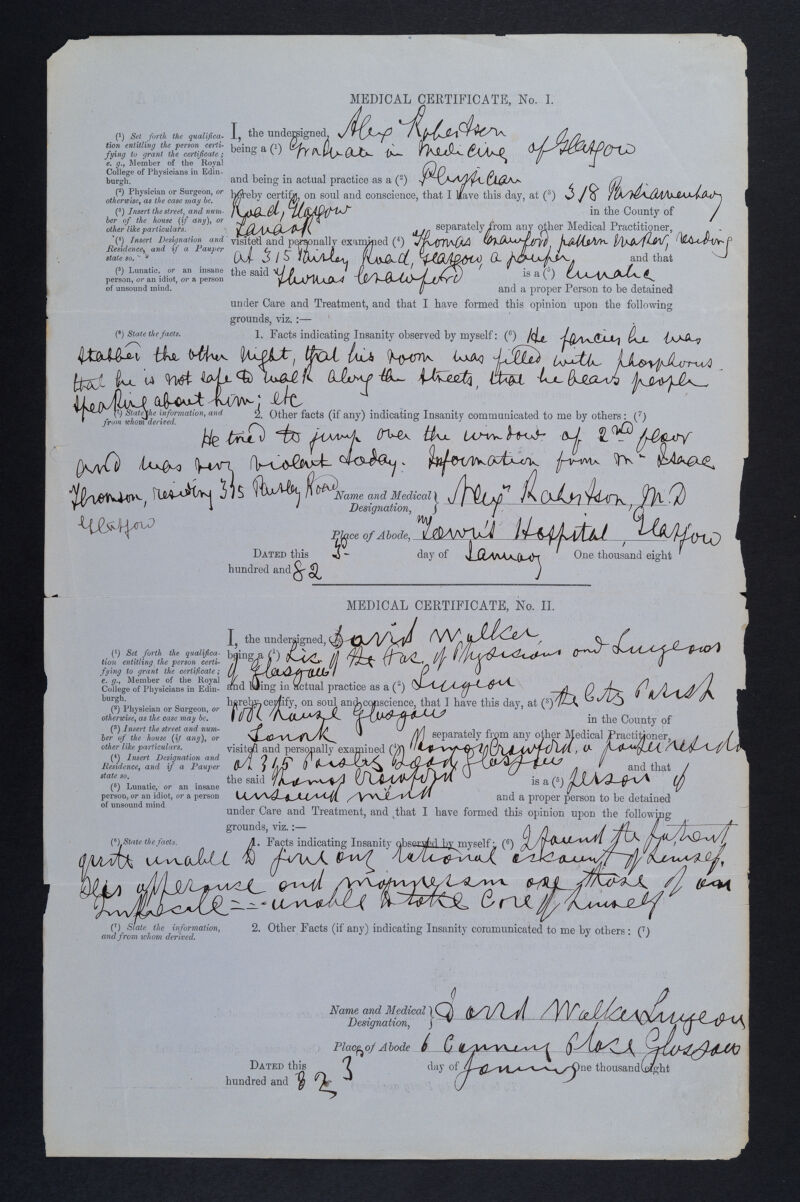 MEDICAL CERTIFICATE, No. I.
(1) Set forth the qualifica-
tion entitling the person certi-
fying to grant the certificate;
e. g., Member of the Royal
College of Physicians in Edin-
burgh.
(2) Physician or Surgeon, or
otherwise, as the case may be.
(3) Insert the street, and num-
ber of the house (if any), or
other like particulars.
(4) Insert Designation and
Residence, and if a Pauper
state so.
(5) Lunatic, or an insane
person, or an idiot, or a person
of unsound mind.
I, the undersigned, Alexr Robertson
being a (1) Graduate in Medicine of Glasgow
and being in actual practice as a (2) Physician
hereby certify, on soul and conscience, that I have this day, at (3) 318 Parliamentary
Road, Glasgow in the County of
Lanark separately from any other Medical Practitioner,
visited and personally examined (4) Thomas Crawford, pattern maker, residing
at 315 Paisley Road, Glasgow, a pauper and that
the said Thomas Crawford is a (5) lunatic
and a proper Person to be detained
under Care and Treatment, and that I have formed this opinion upon the following
grounds, viz. :—
(6) State the facts.
1. Facts indicating Insanity observed by myself: (6) He fancies he was
stabbed the other night, that his room was filled with phosphorus
that he is not safe to walk along the streets, that he hears people
speaking about him; etc
(7) State the information, and
from whom derived.
2. Other facts (if any) indicating Insanity communicated to me by others: (7)
He tried to jump over the window of 2nd floor
and was very violent today. Information from Mr Isaac
Thomson, residing 315 Paisley Road
Glasgow
Name and Medical Designation, Alexr Robertson, M.D
Place of Abode, Town's Hospital, Glasgow
DATED this 3 day of January One thousand eight
hundred and 82
MEDICAL CERTIFICATE, No. II.
(1) Set forth the qualifica-
tion entitling the person certi-
fying to grant the certificate;
e. g., Member of the Royal
College of Physicians in Edin-
burgh.
(2) Physician or Surgeon, or
otherwise, as the case may be.
(3) Insert the street and num-
ber of the house (if any), or
other like particulars.
(4) Insert Designation and
Residence, and if a Pauper
state so.
(5) Lunatic, or an insane
person, or an idiot, or a person
of unsound mind
I, the undersigned, David Walker
being a (1) Lic. of the Fac. of Physicians and Surgeons
of Glasgow
and being in actual practice as a (2) Surgeon
hereby certify, on soul and conscience, that I have this day, at (3) the City Parish
Poor house Glasgow in the County of
Lanark separately from any other Medical Practitioner,
visited and personally examined (4) Thomas Crawford, a pauper
at 315 Paisley Road Glasgow and that
the said Thomas Crawford is a (5) person of
unsound mind and a proper person to be detained
under Care and Treatment, and that I have formed this opinion upon the following
grounds, viz. :—
(6) State the facts.
1. Facts indicating Insanity observed by myself: (6) I found the patient
quite unable to give any rational account of himself.
His apperance and mannerism are those of an
Imbecile -- unable to take Care of himself
(7) State the information,
and from whom derived.
2. Other Facts (if any) indicating Insanity communicated to me by others: (7)
Name and Medical Designation, David Walker Surgeon
Place of Abode 6 Canning Place Glasgow
DATED this 3 day of January One thousand eight
hundred and 82